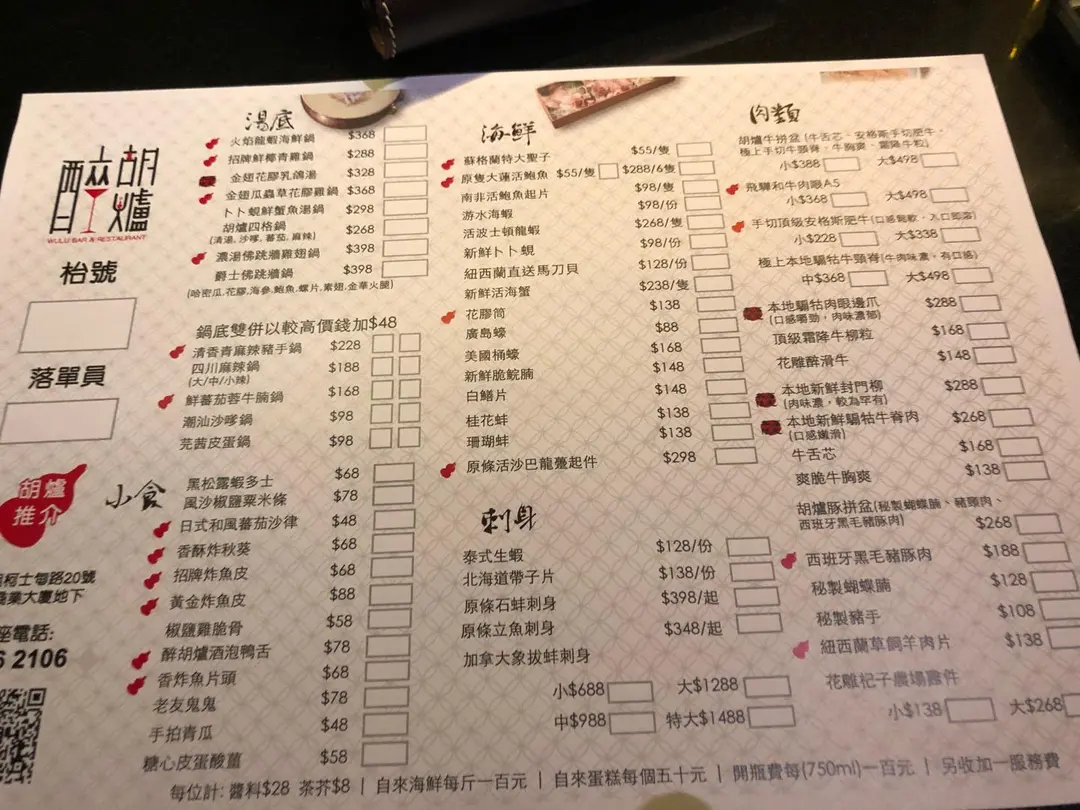 醉胡爐
WULU BAR & RESTAURANT
枱號
落單員
胡爐
推介
柯士甸路20號
業大廈地下
座電話:
6 2106
湯底
火焰龍蝦海鮮鍋 $368
招牌鮮椰青雞鍋 $288
金翅花膠乳鴿湯 $328
金翅瓜蟲草花膠雞鍋 $368
卜卜蜆鮮蟹魚湯鍋 $298
胡爐四格鍋 $268
(清湯, 沙嗲, 蕃茄, 麻辣)
濃湯佛跳牆雞翅鍋 $398
爵士佛跳牆鍋 $398
(哈密瓜,花膠,海參,鮑魚,螺片,素翅,金華火腿)
鍋底雙併以較高價錢加$48
清香青麻辣豬手鍋 $228
四川麻辣鍋 $188
(大/中/小辣)
鮮蕃茄蓉牛腩鍋 $168
潮汕沙嗲鍋 $98
芫茜皮蛋鍋 $98
小食
黑松露蝦多士 $68
風沙椒鹽粟米條 $78
日式和風蕃茄沙律 $48
香酥炸秋葵 $68
招牌炸魚皮 $68
黃金炸魚皮 $88
椒鹽雞脆骨 $58
醉胡爐酒泡鴨舌 $78
香炸魚片頭 $68
老友鬼鬼 $78
手拍青瓜 $48
糖心皮蛋酸薑 $58
海鮮
蘇格蘭特大聖子 $55/隻
原隻大蓮活鮑魚 $55/隻 $288/6隻
南非活鮑魚起片 $98/隻
游水海蝦 $98/份
活波士頓龍蝦 $268/隻
新鮮卜卜蜆 $98/份
紐西蘭直送馬刀貝 $128/份
新鮮活海蟹 $238/隻
花膠筒 $138
廣島蠔 $88
美國桶蠔 $168
新鮮脆鯇腩 $148
白鱔片 $148
桂花蚌 $138
珊瑚蚌 $138
原條活沙巴龍躉起件 $298
刺身
泰式生蝦 $128/份
北海道帶子片 $138/份
原條石蚌刺身 $398/起
原條立魚刺身 $348/起
加拿大象拔蚌刺身
小$688 大$1288
中$988 特大$1488
肉類
胡爐牛拼盆(牛舌芯、安格斯手切肥牛、
極上手切牛頸脊、牛胸爽、霜降牛粒)
小$388 大$498
飛驒和牛肉眼A5
小$368 大$498
手切頂級安格斯肥牛(口感鬆軟,入口即溶)
小$228 大$338
極上本地騸牯牛頸脊(牛肉味濃,有口感)
中$368 大$498
本地騸牯肉眼邊爪 $288
(口感嚼勁,肉味濃郁)
頂級霜降牛柳粒 $168
花雕醉滑牛 $148
本地新鮮封門柳 $288
(肉味濃,較為罕有)
本地新鮮騸牯牛脊肉 $268
(口感嫩滑)
牛舌芯 $168
爽脆牛胸爽 $138
胡爐豚拼盆(秘製蝴蝶腩、豬頸肉、
西班牙黑毛豬豚肉) $268
西班牙黑毛豬豚肉 $188
秘製蝴蝶腩 $128
秘製豬手 $108
紐西蘭草飼羊肉片 $138
花雕杞子農場雞件
小$138 大$268
每位計: 醬料$28 茶芥$8 | 自來海鮮每斤一百元 | 自來蛋糕每個五十元 | 開瓶費每(750ml)一百元 | 另收加一服務費